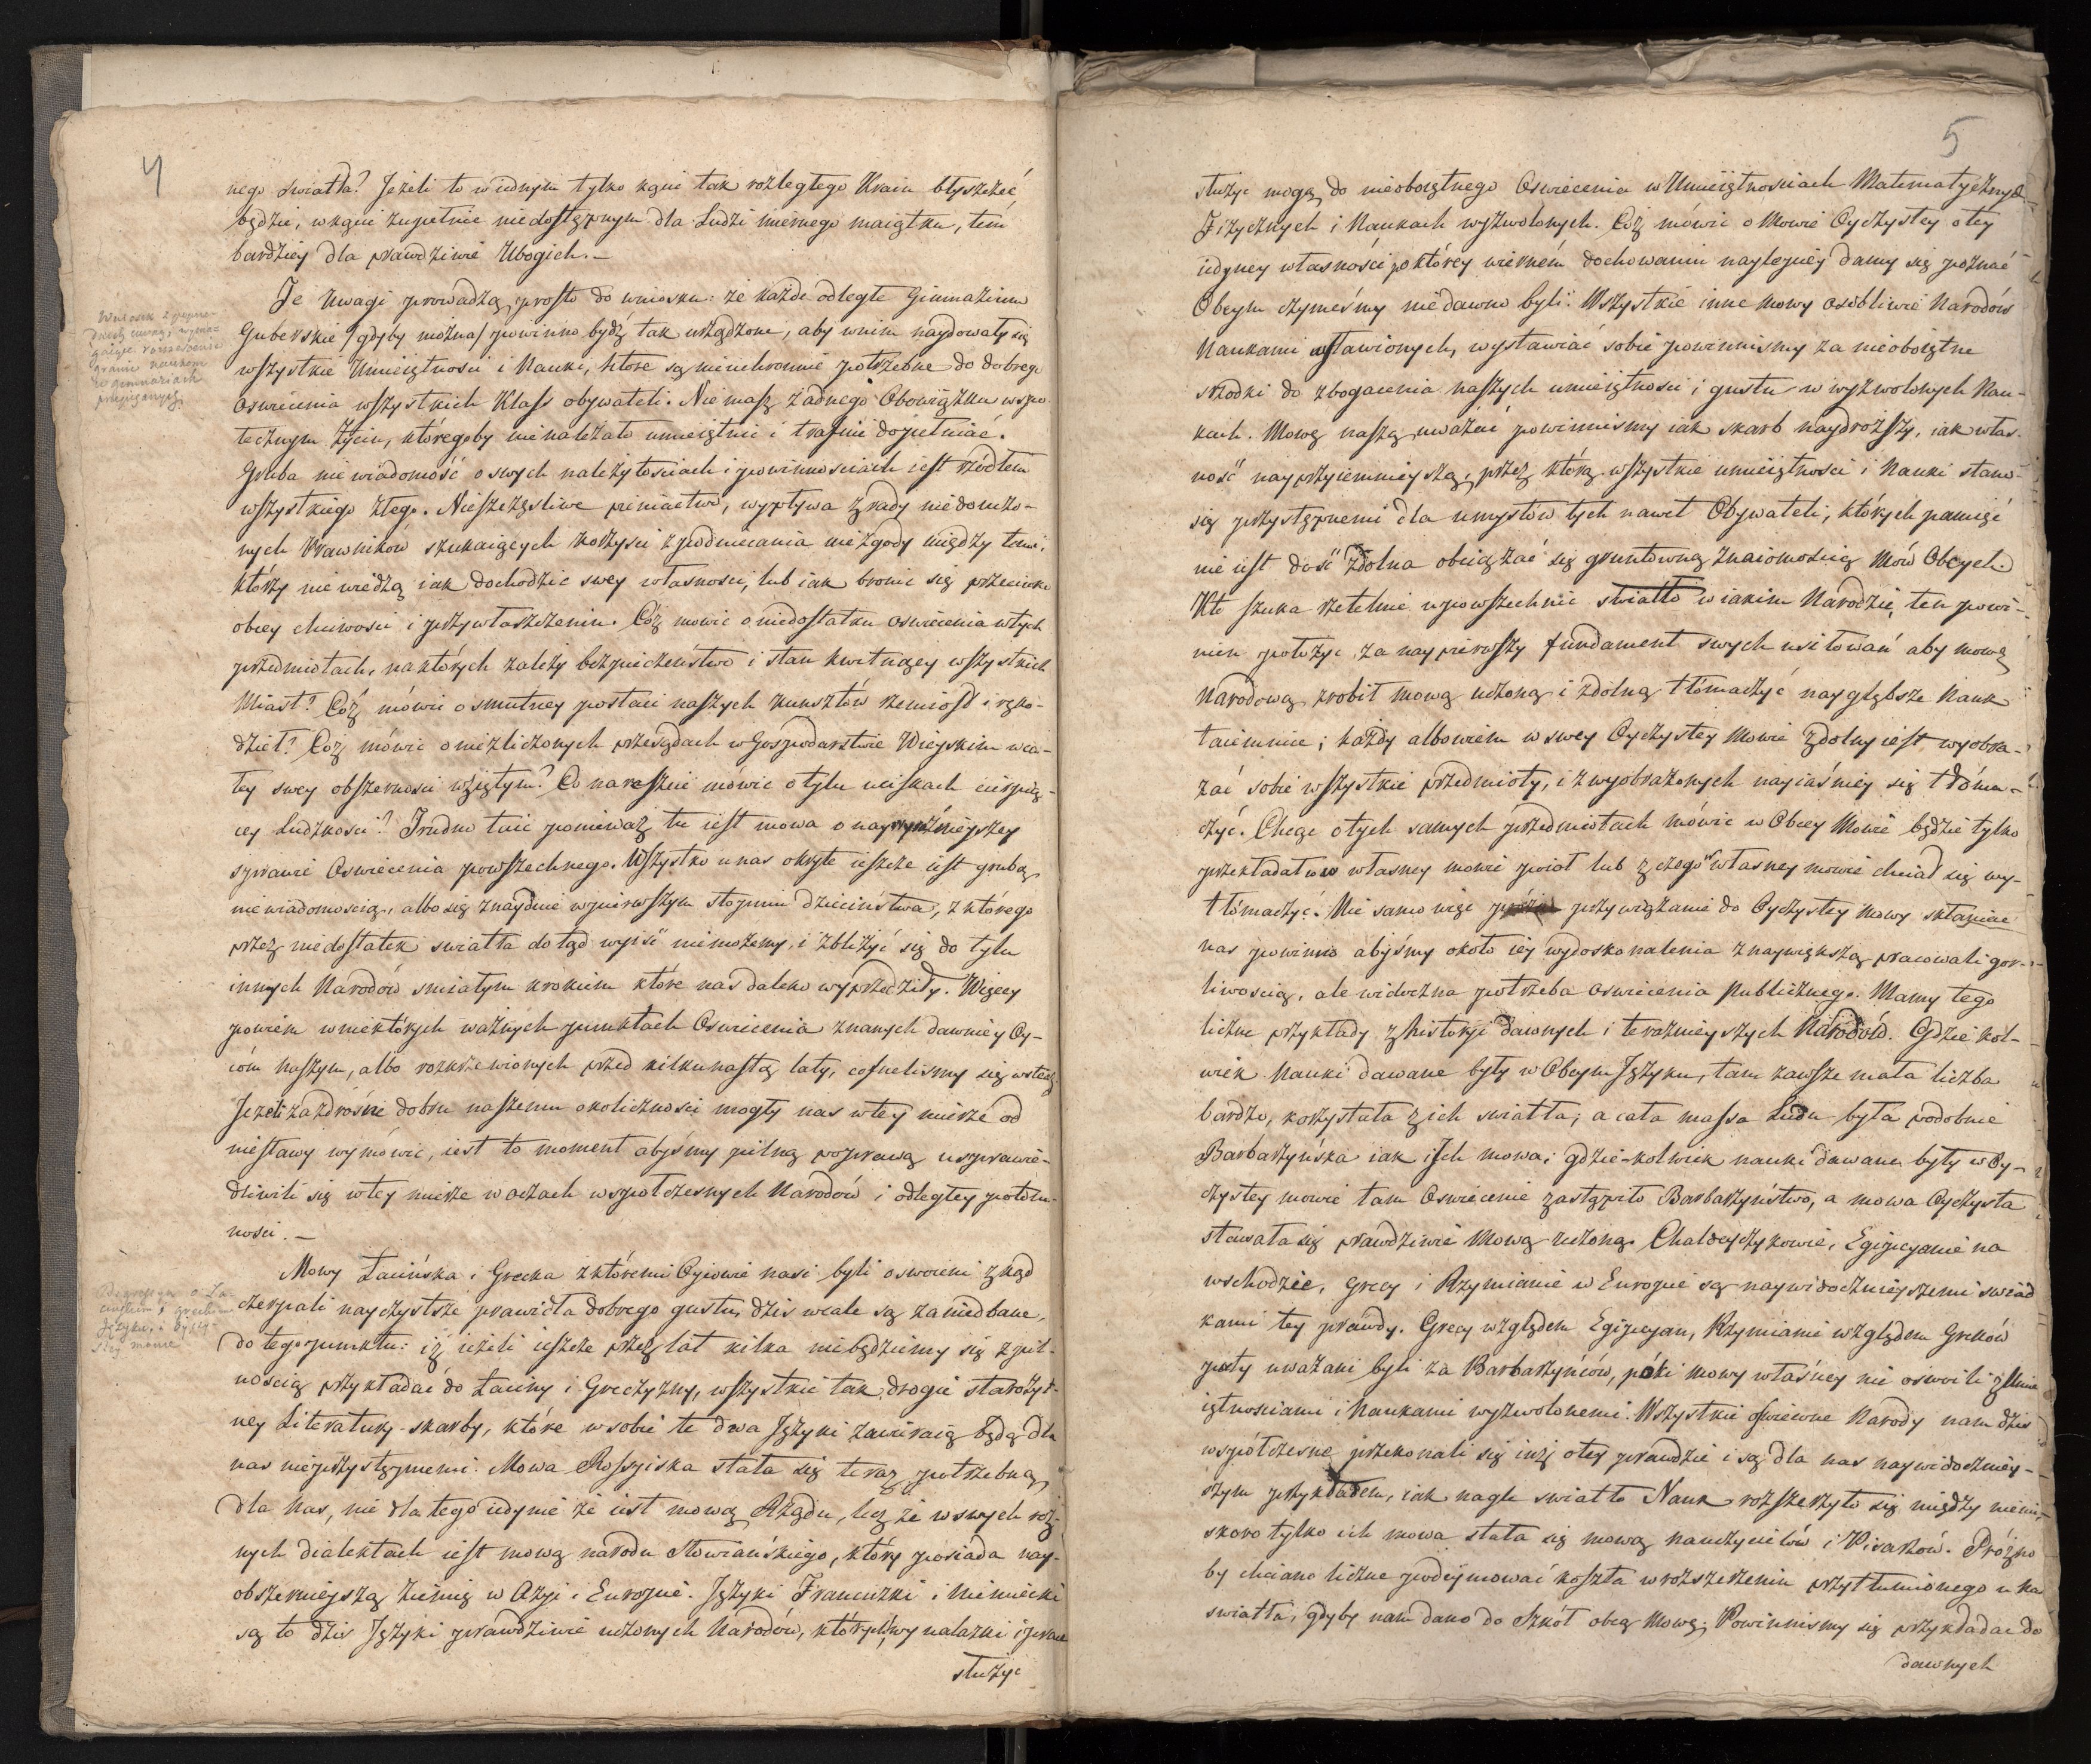 4
nego światła? Jeżeli to w iednym tylko kącie tak rozległego Kraiu błyszczeć
będzie, w kącie zupełnie niedostępnym dla Ludzi miernego maiątku, tém
bardziey dla prawdziwie Ubogich. —
Te Uwagi prowadzą prosto do wniosku: że każde odległe Gimnazium
Guberskie /gdyby można/ powinno bydź tak urządzone, aby w nim naydowały się
wszystkie Umieiętności i Nauki, które są nieuchronnie potrzebne do dobrego
Oswiecenia wszystkich Klass obywateli. Nie masz żadnego Obowiązku w społ-
tecznym Życiu, któregoby nie należało umieiętnie i trafnie dopełniać.
Gruba nie wiadomość o swych należytościach i powinnościach iest źródłem
wszystkiego złego. Nieszczęsliwe pieniactwo, wypływa z rady niedouczo-
nych Prawników szukaiących korzysci z podniecania niezgody między temi,
którzy nie wiedzą iak dochodzić swey własnosci, lub iak bronić się przeciwko
obcey chciwosci i przywłaszczeniu. Cóż mowić o niedostatku oswiecenia w tych
przedmiotach, na których zależy bezpieczeństwo i stan kwitnący wszystkich
Miast? Cóż mówić o smutney postaci naszych kunsztów rzemiosł i ręko-
dzieł? Cóż mówić o niezliczonych przesądach w Gospodarstwie Wieyskim w ca-
łey swey obszernosci wziętym? Co nareszcie mówić o tylu uciskach cierpią-
cey Ludzkosci? Trudno taić ponieważ tu iest mowa o nayważnieyszey
sprawie Oswiecenia powszechnego. Wszystko u nas okryte ieszcze iest grubą
niewiadomoscią, albo się znayduie w pierwszym stopniu dzieciństwa, z którego
przez niedostatek swiatła dotąd wyiść niemożemy, i zbliżyć się do tylu
innych Narodów smiałym krokiem które nas daleko wyprzedziły. Więcey
powiem w niektórych ważnych punktach Oswiecenia znanych dawniey Oy-
com naszym, albo rozkrzewionych przed kilkunastą laty, cofneliśmy się wstecz
Jeżeli zazdrośne dobru naszemu okoliczności mogły nas w tey mierze od
niesławy wymówić, iest to moment abyśmy pilną poprawą usprawie-
dliwili się w tey mierze w oczach wspołczesnych Narodów i odległey potom-
nosci. —
Mowy Łacińska i Grecka z któremi Oycowie nasi byli oswoieni z kąd
czerpali nayczystsze prawidła dobrego gustu, dziś wcale są zaniedbane,
do tego punktu: iż ieżeli ieszcze przez lat kilka nie będziemy się z pil-
nością przykładać do Łaciny i Greczyzny, wszystkie tak drogie starożyt-
ney Literatury skarby, które w sobie te dwa Języki zawieraią będą dla
nas nieprzystępnemi. Mowa Rossyiska stała się teraz potrzebną
dla Nas, nie dla tego iedynie że iest mową Rządu, lecz że w swych róż-
nych dialektach iest mową narodu Słowiańskiego, który posiada nay-
obszernieyszą ziemię w Azyi i Europie. Języki Francuzki i Niemiecki
są to dziś Języki prawdziwie uczonych Narodów, których wynalazki i prace
służyć
Wniosek z poprze-
rozszerzenie
nauk
w gimnaziach
Digressya o Ła-
cińskim i greckim
języku, i oyczy-
stey mowie
5
służyć mogą do nieoboiętnego Oswiecenia w Umieiętnosciach Matematycznych
Fizycznych i Naukach wyzwolonych. Cóż mówić o Mowie Oyczystey o tey
iedyney własności po którey wierném dochowaniu naylepiey damy się poznać
Obcym czymeśmy niedawno byli. Wszystkie inne Mowy osobliwie Narodów
Naukami wsławionych, wystawiać sobie powinnismy za nieoboiętne
srzodki do zbogacenia naszych umieiętności i gustu w wyzwolonych Nau-
kach. Mowę naszą uważać powinnismy iak skarb naydroższy, iak włas-
ność nayprzyiemnieyszą, przez którą wszystkie umieiętnosci i Nauki staną
się przystępnemi dla umysłów tych nawet Obywateli, których pamięć
nie iest dość zdolna obciążać się gruntowną znaiomością Mów Obcych.
Kto szuka rzetelnie upowszechnić swiatło w iakim Narodzie, ten powi-
nien położyć za naypierwszy fundament swych usiłowań aby mowę
Narodową zrobił mową uczoną i zdolną tłómaczyć naygłębsze Nauk
taiemnice; każdy albowiem w swey Oyczystey Mowie zdolny iest wyobra-
żać sobie wszystkie przedmioty, i z wyobrażonych nayiaśniey się tłóma-
czyć. Chcąc o tych samych przedmiotach mówić w Obcey Mowie będzie tylko
przekładał w własney mowie poiął lub z czego w własney mowie chciał się wy-
tłómaczyć. Nie samo więc przywiązanie do Oyczystey Mowy skłaniać
nas powinno abyśmy około iey wydoskonalenia z naywiększą pracowali gor-
liwością, ale widoczna potrzeba Oswiecenia Publicznego. Mamy tego
liczne przykłady z historyi dawnych i teraznieyszych Narodów. Gdzie kol-
wiek Nauki dawane były w Obcym Języku, tam zawsze mała liczba
bardzo, korzystała z ich swiatła; a cała massa Ludu była podobnie
Barbarzyńska iak Ich mowa; gdzie-kolwiek nauki dawane były w Oy-
czystey mowie tam Oswiecenie zastąpiło Barbarzyństwo, a mowa Oyczysta
stawała się prawdziwie Mową uczoną. Chaldeyczykowie, Egipcyanie na
wschodzie, Grecy i Rzymianie w Europie są naywidocznieyszemi swiad
kami tey prawdy. Grecy względem Egipcyan, Rzymianie względem Greków
poty uważani byli za Barbarzyńców, póki Mowy własney nie oswoili z Umie
iętnosciami i Naukami wyzwolonemi. Wszystkie Oswiecone Narody nam dziś
wspołczesne przekonali się iuż o tey prawdzie i są dla nas naywidocznieys-
szym przykładem, iak nagle swiatło Nauk rozszerzyło się między niemi,
skoro tylko ich mowa stała się mową nauczycielów i Pisarzów. Próżno
by chciano liczne podeymować koszta w rozszerzeniu przytłumionego u nas
swiatła, gdyby nam dano do Szkół obcą Mowę; Powinnismy się przykładać do
dawnych